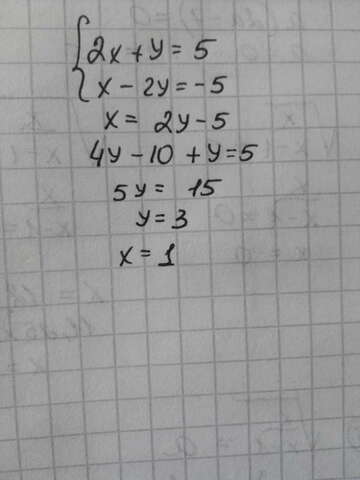 2x + y = 5
x - 2y = -5
x = 2y - 5
4y - 10 + y = 5
5y = 15
y = 3
x = 1